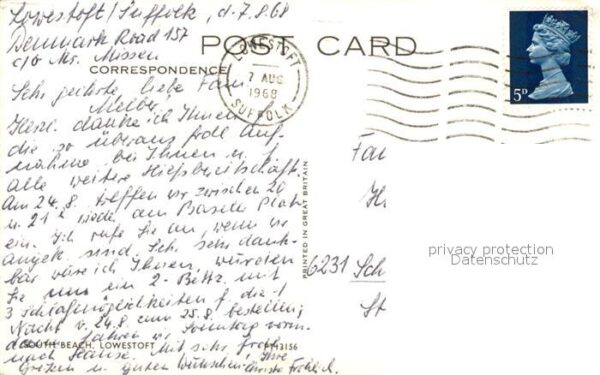 Lowestoft/Suffolk, d. 7.8.68
Denmark Road 157
c/o Mrs. Missen
POST CARD
CORRESPONDENCE
LOWESTOFT
7 AUG
1968
SUFFOLK
5D
Sehr geehrte, liebe Fam.
Melber,
Herzl. danke ich Ihnen f.
die so überaus fdl. Auf-
nahme bei Ihnen u. f.
alle weitere Hilfsbereitschaft.
Am 24.8. treffen wir zwischen 20
u. 21 h wieder am Basler Platz
ein. Ich rufe Sie an, wenn wir
angek. sind. Sehr, sehr dank-
bar wäre ich Ihnen, würden
Sie uns ein 2-Bettz. mit
3 Schlafmöglichkeiten f. die
Nacht v. 24.8. zum 25.8. bestellen,
dann fahren wir Sonntag vorm.
nach Hause. Mit sehr frdl.
Grüßen u. guten Wünschen, Ihre
Christa Fröhlich.
SOUTH BEACH, LOWESTOFT
PT13156
PRINTED IN GREAT BRITAIN
Fa
H
6231 Sch
St
privacy protection
Datenschutz